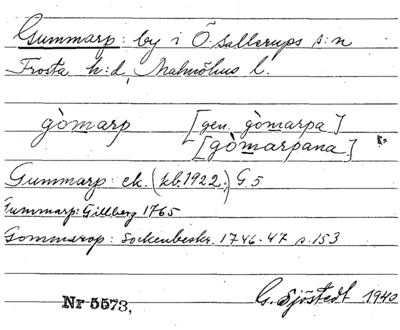 Gummarp: by i Ö. Sallerups s:n
Frosta h:d, Malmöhus l.
gòmarp [gen. gòmarpa]
[gòmarpana.] R=
Gummarp: ek. (kb. 1922.) G. 5.
Gummarp: Gillberg 1765
Gommarop: Sockenbeskr. 1746-47 s. 153
Nr 5573,
G. Sjöstedt 1940